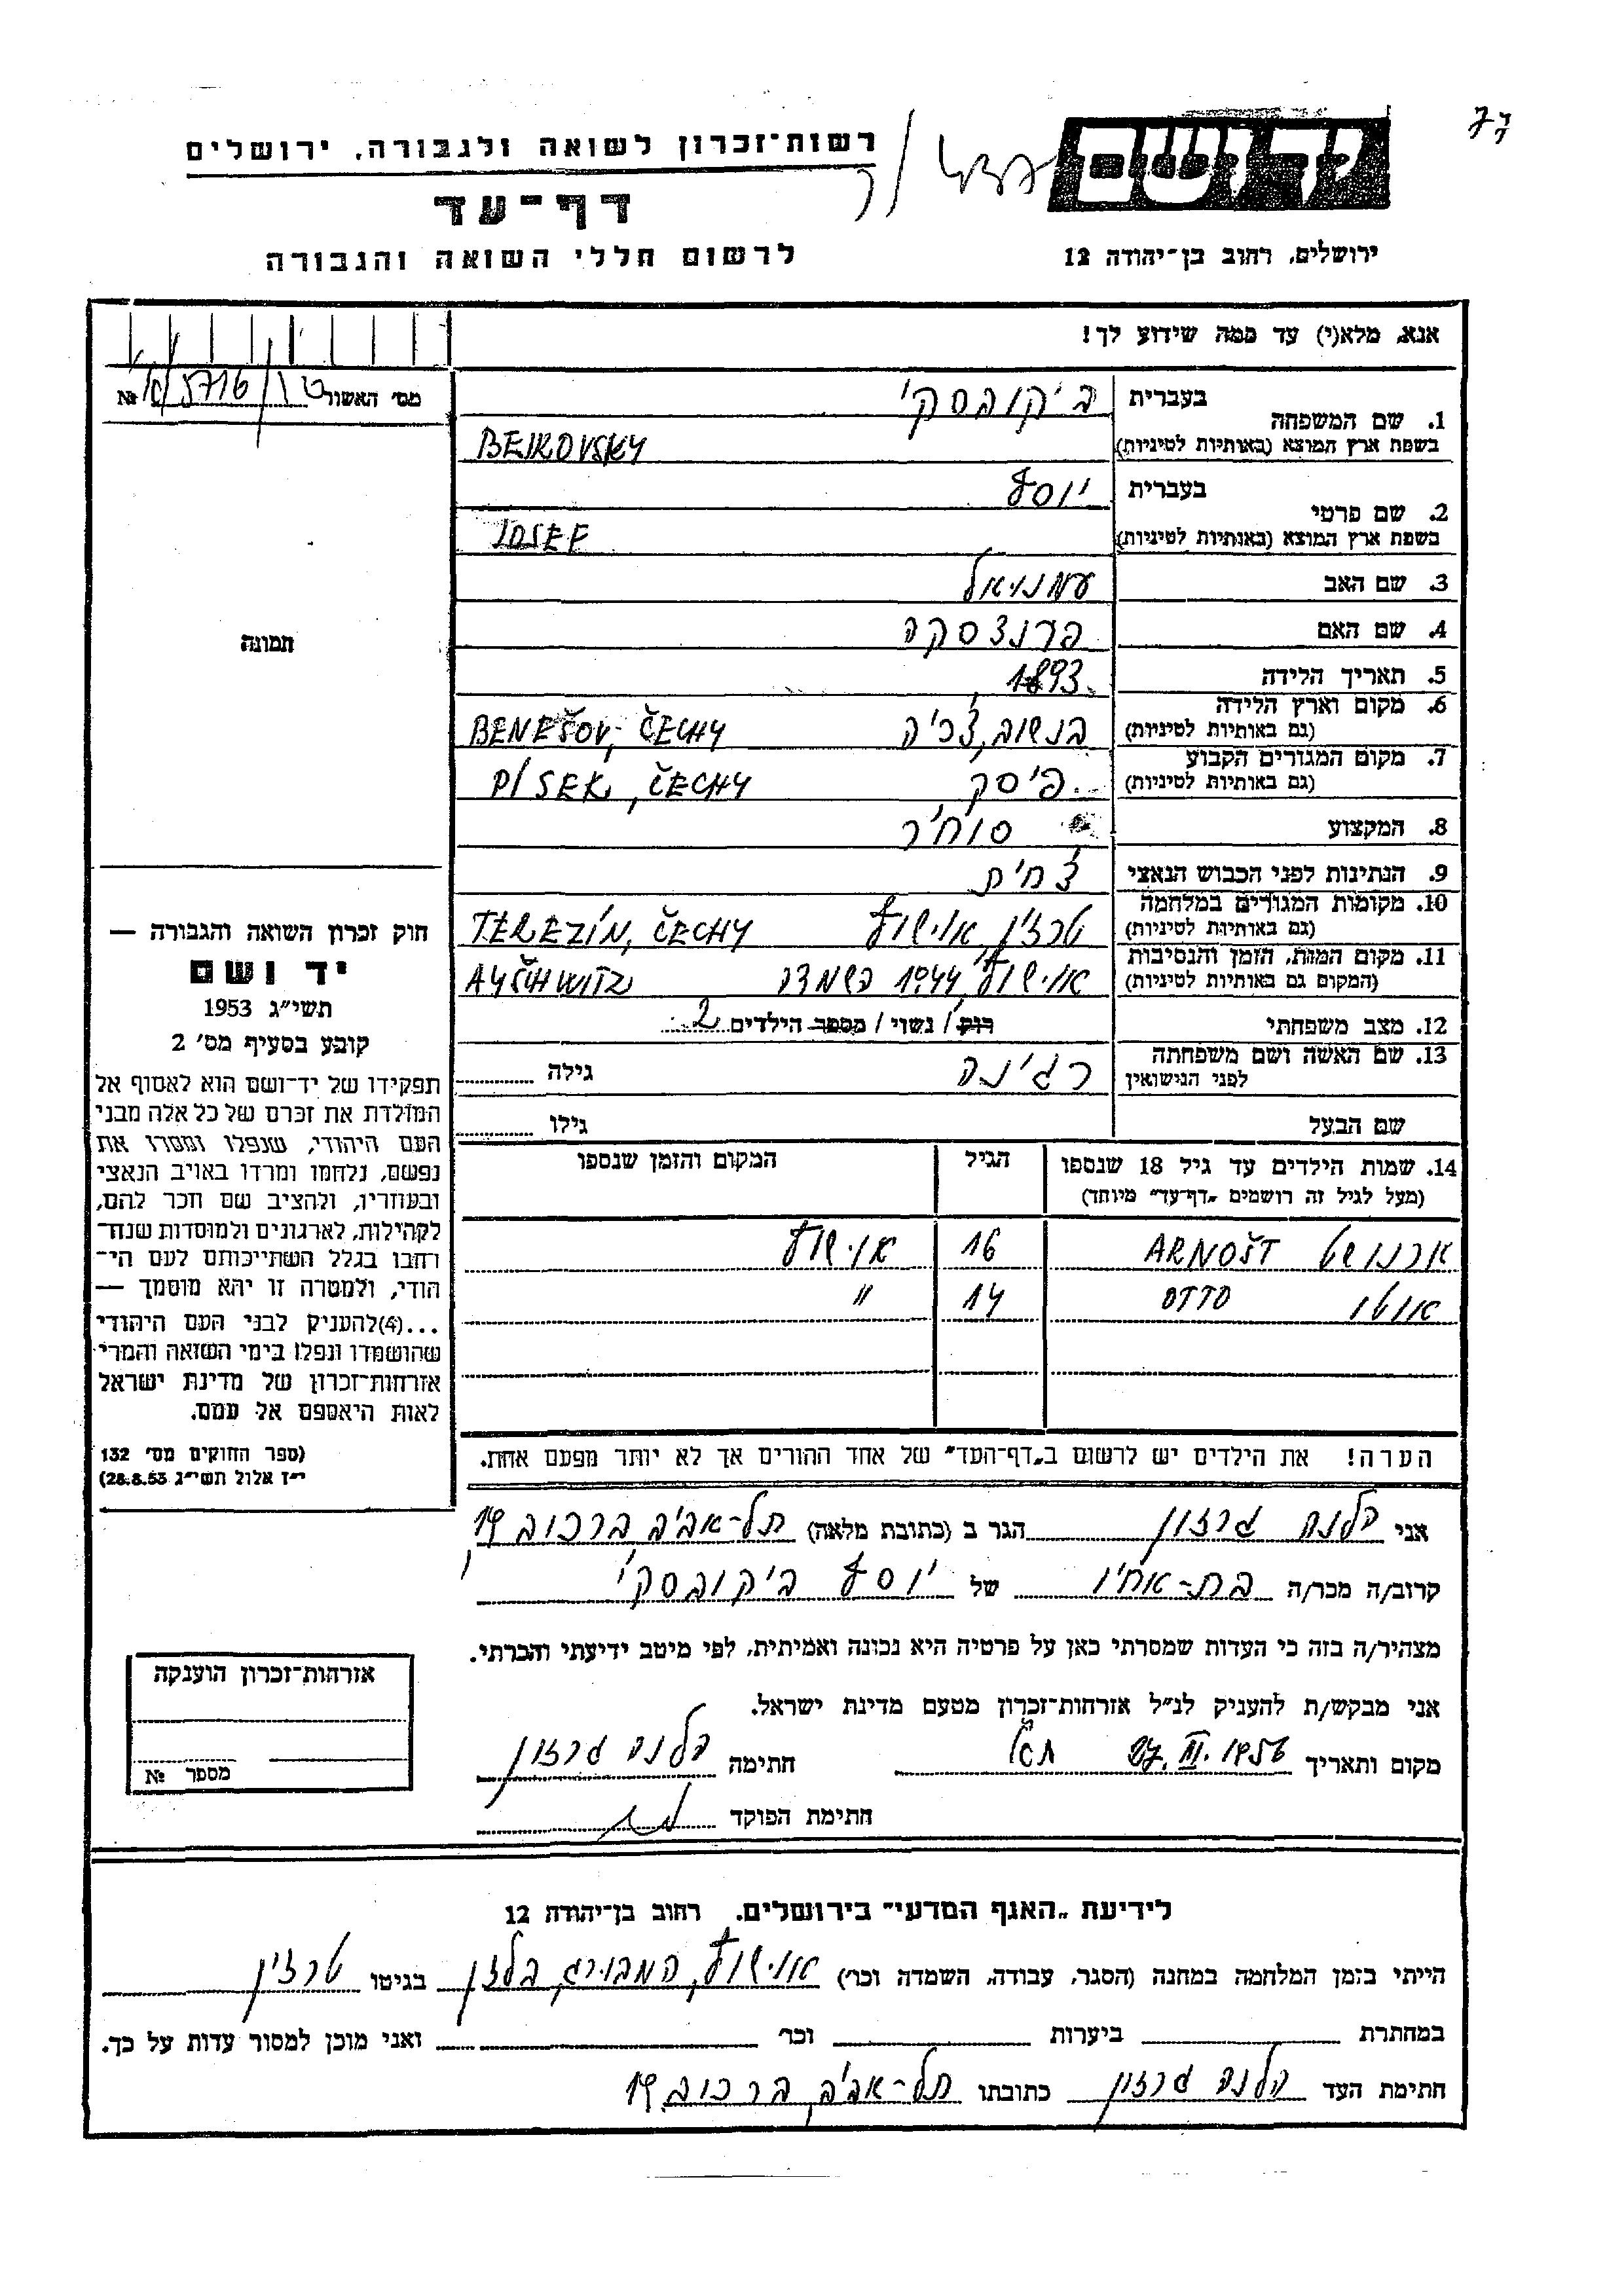 רשות־זכרון לשואה ולגבורה, ירושלים
יד ושם
דף־עד
לרשום חללי השואה והגבורה
ירושלים, רחוב בן־יהודה 12
אנא, מלא(י) עד כמה שידוע לך!
מס׳ האשור 5716 №
1. שם המשפחה
בעברית ביקובסקי
בשפת ארץ המוצא (באותיות לטיניות) BEIKOVSKY
2. שם פרטי
בעברית יוסף
בשפת ארץ המוצא (באותיות לטיניות) JOSEF
3. שם האב עמנויאל
4. שם האם פרנצסקה
5. תאריך הלידה 1893
6. מקום וארץ הלידה בנשוב, צ׳כיה BENEŠOV, ČECHY
(גם באותיות לטיניות)
7. מקום המגורים הקבוע פיסק PÍSEK, ČECHY
(גם באותיות לטיניות)
8. המקצוע סוחר
9. הנתינות לפני הכבוש הנאצי צ׳כית
10. מקומות המגורים במלחמה טרזין, אוישוץ TEREZÍN, ČECHY
(גם באותיות לטיניות)
11. מקום המות, הזמן והנסיבות אוישוץ 1944 השמדה AUSCHWITZ
(המקום גם באותיות לטיניות)
12. מצב משפחתי רוק / נשוי / מספר הילדים 2
13. שם האשה ושם משפחתה רג׳ינה גילה
לפני הנישואין
שם הבעל גילו
תמונה
חוק זכרון השואה והגבורה —
יד ושם
תשי״ג 1953
קובע בסעיף מס׳ 2
תפקידו של יד־ושם הוא לאסוף אל
המולדת את זכרם של כל אלה מבני
העם היהודי, שנפלו ומסרו את
נפשם, נלחמו ומרדו באויב הנאצי
ובעוזריו, ולהציב שם וזכר להם,
לקהילות, לארגונים ולמוסדות שנח־
רבו בגלל השתייכותם לעם הי־
הודי, ולמטרה זו יהא מוסמך —
...(4) להעניק לבני העם היהודי
שהושמדו ונפלו בימי השואה והמרי
אזרחות־זכרון של מדינת ישראל
לאות היאספם אל עמם.
(ספר החוקים מס׳ 132
י״ז אלול תשי״ג 28.8.53)
14. שמות הילדים עד גיל 18 שנספו הגיל המקום והזמן שנספו
(מעל לגיל זה רושמים „דף־עד״ מיוחד)
ארנושט ARNOŠT 16 אוישוץ
אוטו OTTO 14 "
הערה! את הילדים יש לרשום ב„דף־העד״ של אחד ההורים אך לא יותר מפעם אחת.
אני הלנה גרזון הגר ב (כתובת מלאה) תל־אביב ברכוב 19
קרוב/ה מכר/ה בת־אחיו של יוסף ביקובסקי
מצהיר/ה בזה כי העדות שמסרתי כאן על פרטיה היא נכונה ואמיתית, לפי מיטב ידיעתי והכרתי.
אני מבקש/ת להעניק לנ״ל אזרחות־זכרון מטעם מדינת ישראל.
מקום ותאריך 27. III. 1956 ת״א חתימה הלנה גרזון
חתימת הפוקד
אזרחות־זכרון הוענקה
מספר №
לידיעת „האגף המדעי״ בירושלים, רחוב בן־יהודה 12
הייתי בזמן המלחמה במחנה (הסגר, עבודה, השמדה וכר׳) אוישוץ, המבורג, בלזן בגיטו טרזין
במחתרת ביערות וכר׳ ואני מוכן למסור עדות על כך.
חתימת העד הלנה גרזון כתובתו תל־אביב, ברכוב 19